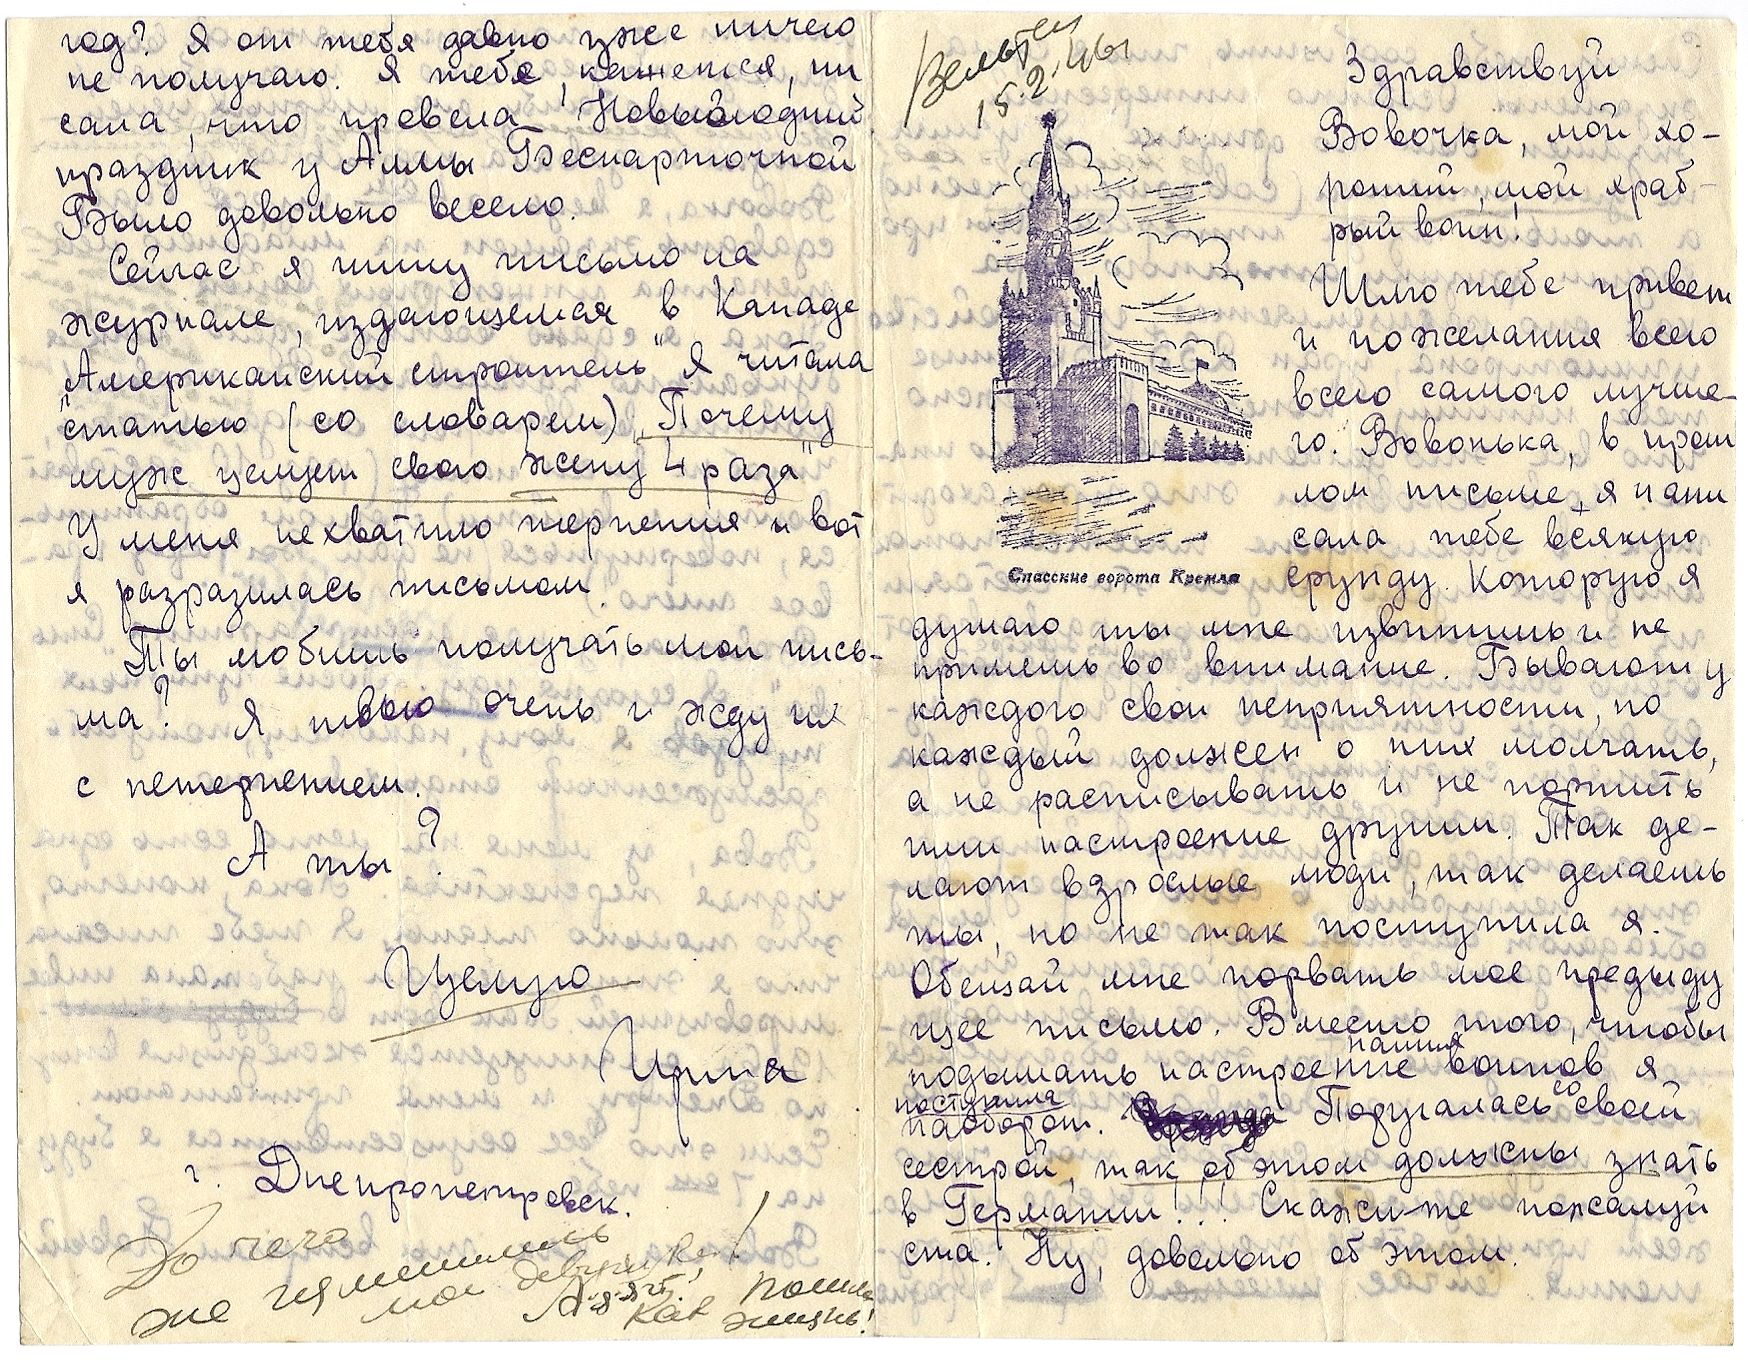 Вельтен
15.2.46ы
Здравствуй
Вовочка, мой хо-
роший, мой храб-
рый воин!
Шлю тебе привет
и пожелания всего
всего самого лучше-
го. Вовонька, в прош
лом письме я напи
сала тебе всякую
ерунду. Которую я
думаю ты мне извинишь и не
примешь во внимание. Бывают у
каждого свои неприятности, но
каждый должен о них молчать,
а не расписывать и не портить
ими настроение другим. Так де-
лают взрослые люди, так делаешь
ты, но не так поступила я.
Обещай мне порвать мое предыду
щее письмо. Вместо того, чтобы
подымать настроение наших воинов я
поступила наоборот. Поругалась со своей
сестрой, так об этом должны знать
в Германии!!! Скажи-те пожалуй
ста. Ну, довольно об этом.
Спасские ворота Кремля
год? Я от тебя давно уже ничего
не получаю. Я тебе, кажется, пи
сала, что провела Новыйгодний
праздник у Аллы Беспарточной
Было довольно весело.
Сейчас я пишу письмо на
журнале, издающемся в Канаде
„Американский строитель" Я читала
статью (со словарем) „Почему
муж целует свою жену 4 раза"
У меня нехватило терпения и вот
я разразилась письмом.
Ты любишь получать мои пись-
ма? Я твою очень и жду их
с нетерпением.
А ты?
Целую
Ирина
г. Днепропетровск.
До чего
же
мои девушки!
А-я-яй!
Как пошла
жизнь!